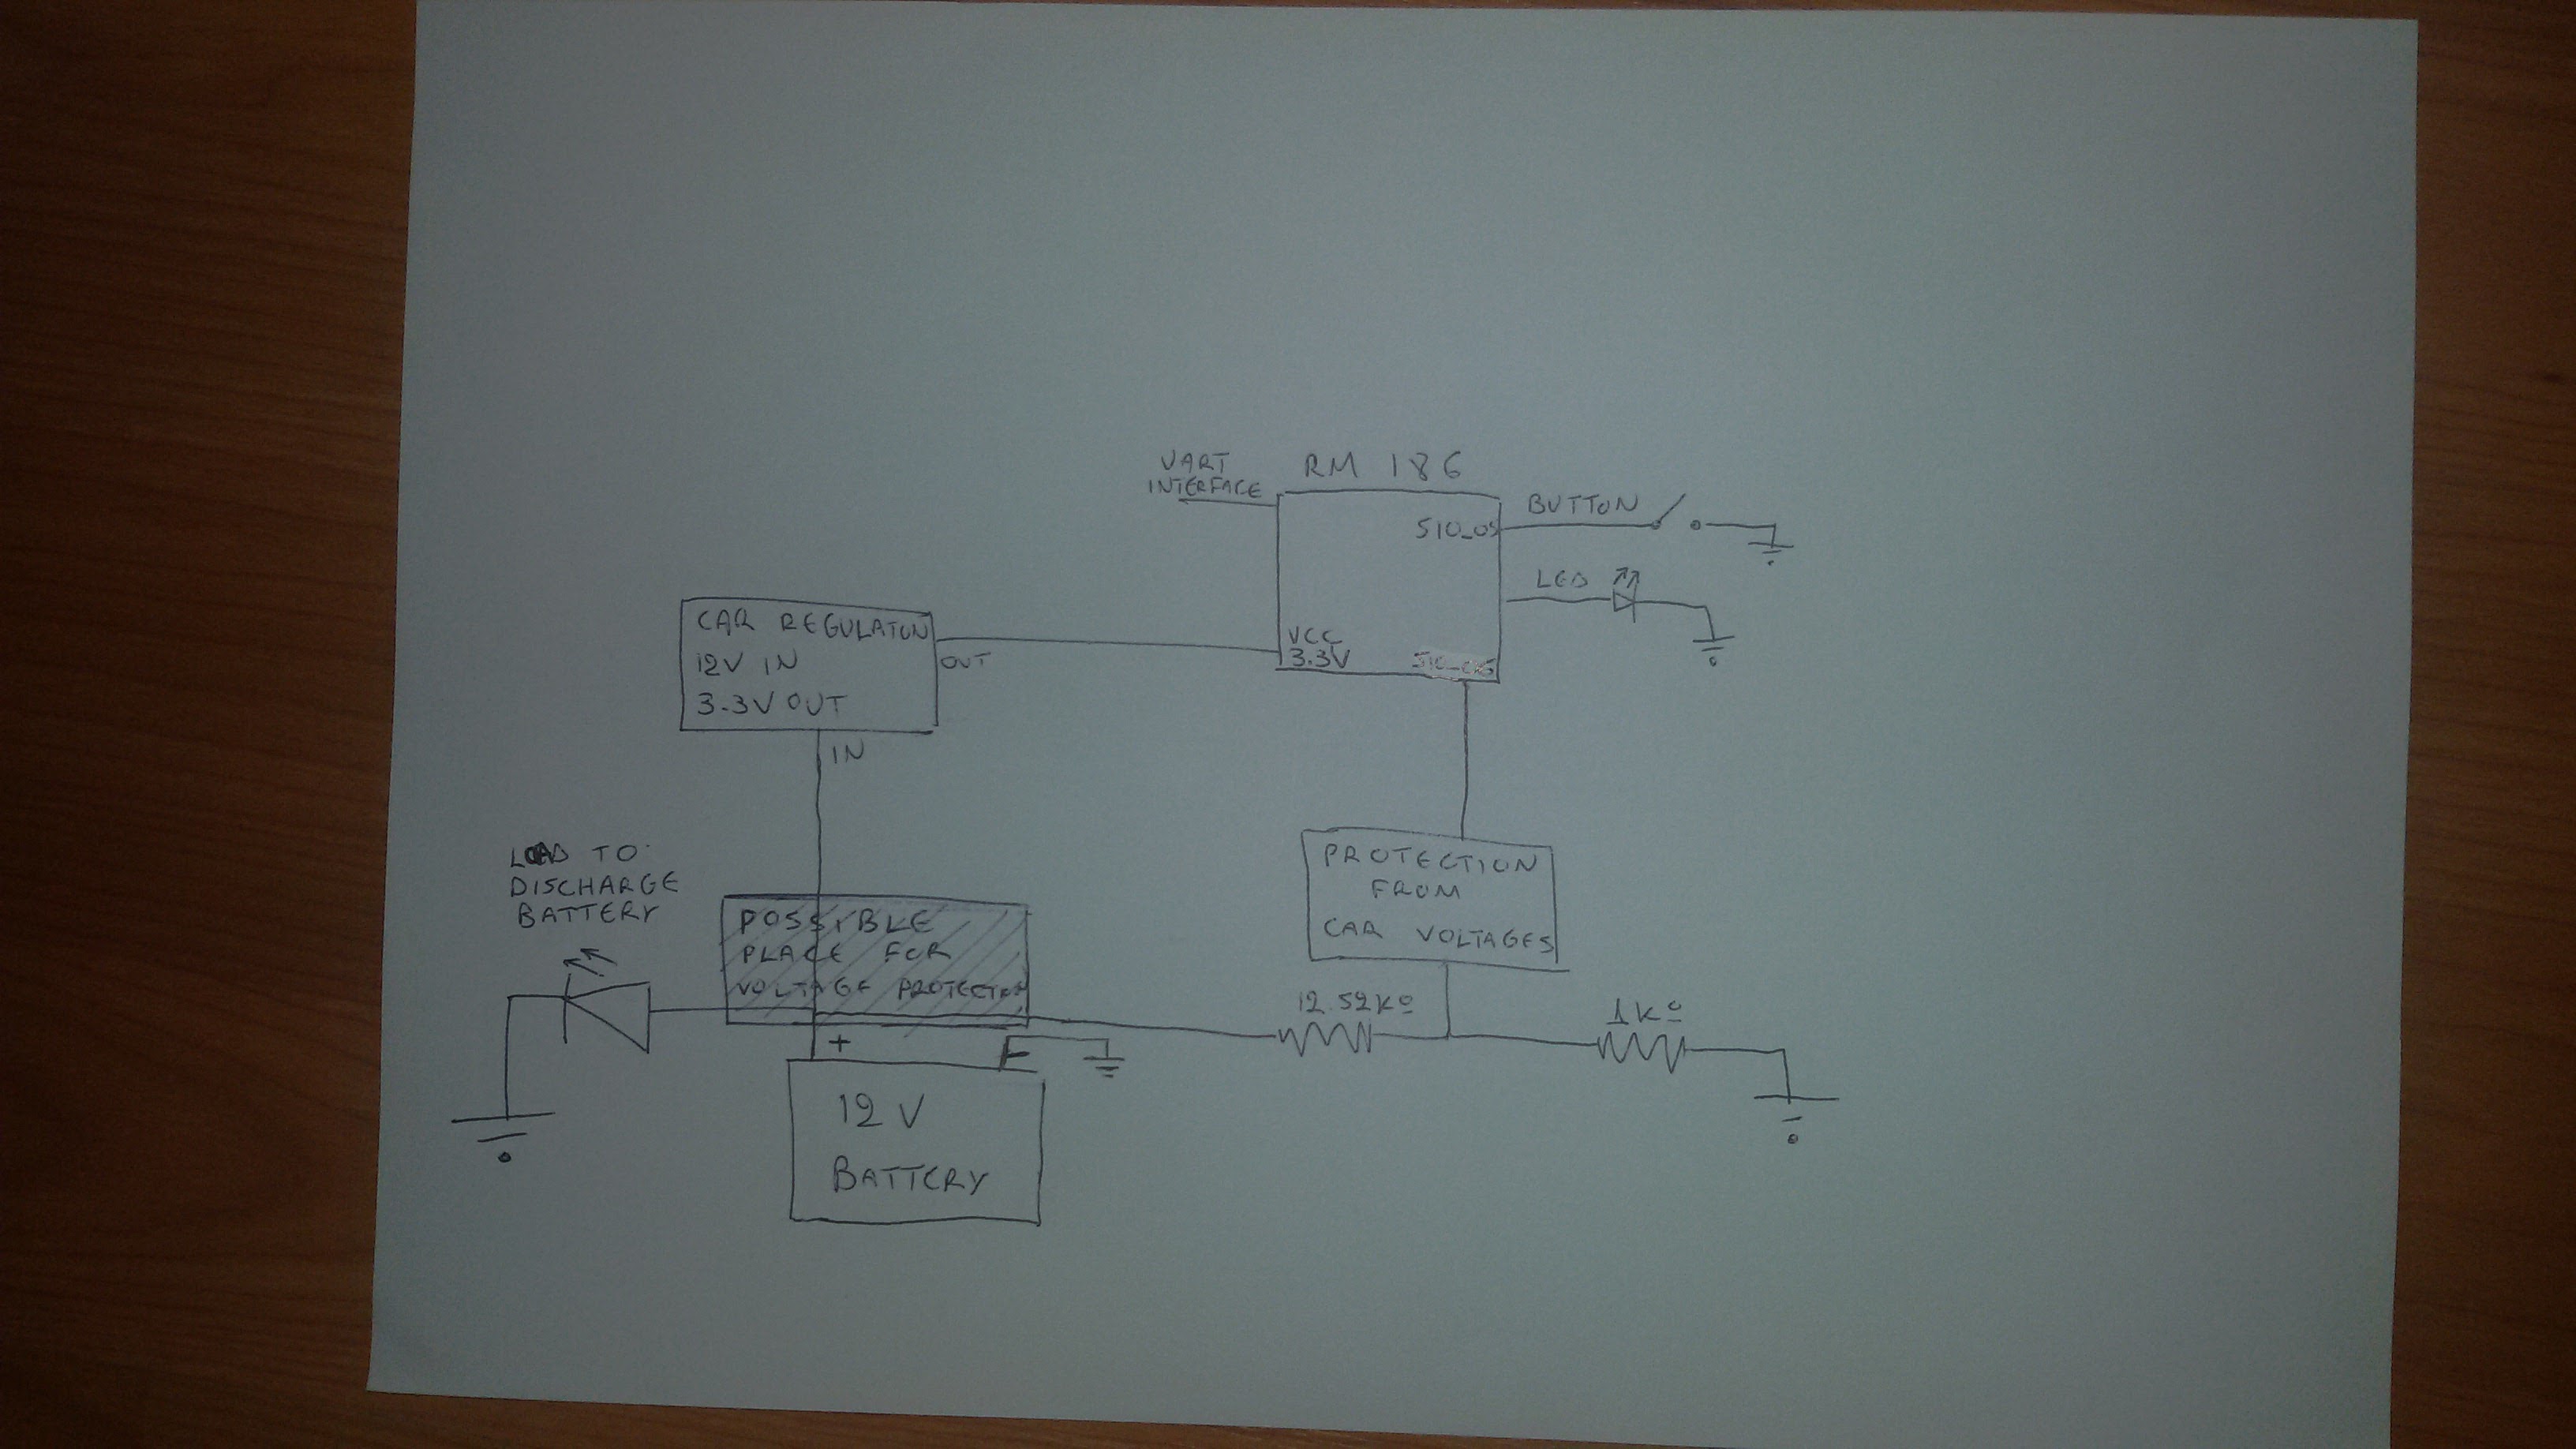 UART
INTERFACE
RM 186
SIO_05
BUTTON
LED
VCC
3.3V
CAR REGULATON
12V IN
3.3V OUT
OUT
IN
LOAD TO
DISCHARGE
BATTERY
POSSIBLE
PLACE FOR
VOLTAGE PROTECTION
PROTECTION
FROM
CAR VOLTAGES
12.52K
1K
+
12 V
BATTERY